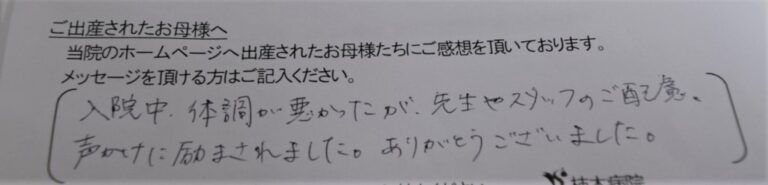 ご出産されたお母様へ
当院のホームページへ出産されたお母様たちにご感想を頂いております。
メッセージを頂ける方はご記入ください。
入院中、体調が悪かったが、先生やスタッフのご配慮、
声かけに励まされました。ありがとうございました。